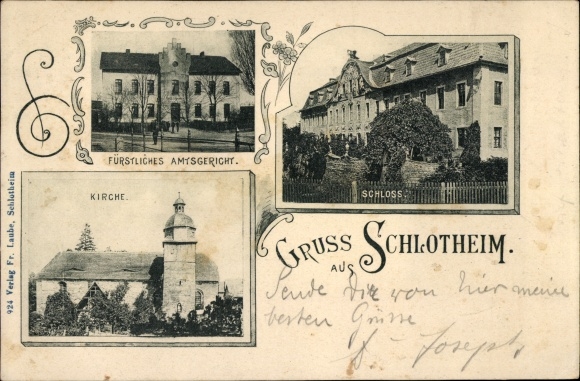 FÜRSTLICHES AMTSGERICHT.
SCHLOSS.
KIRCHE.
GRUSS
AUS
SCHLOTHEIM.
Sende Dir von hier meine
besten Grüsse
Joseph
924 Verlag Fr. Laube, Schlotheim